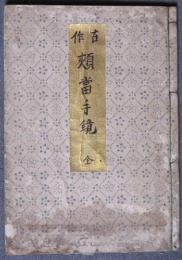 古作
頬當手鏡
全